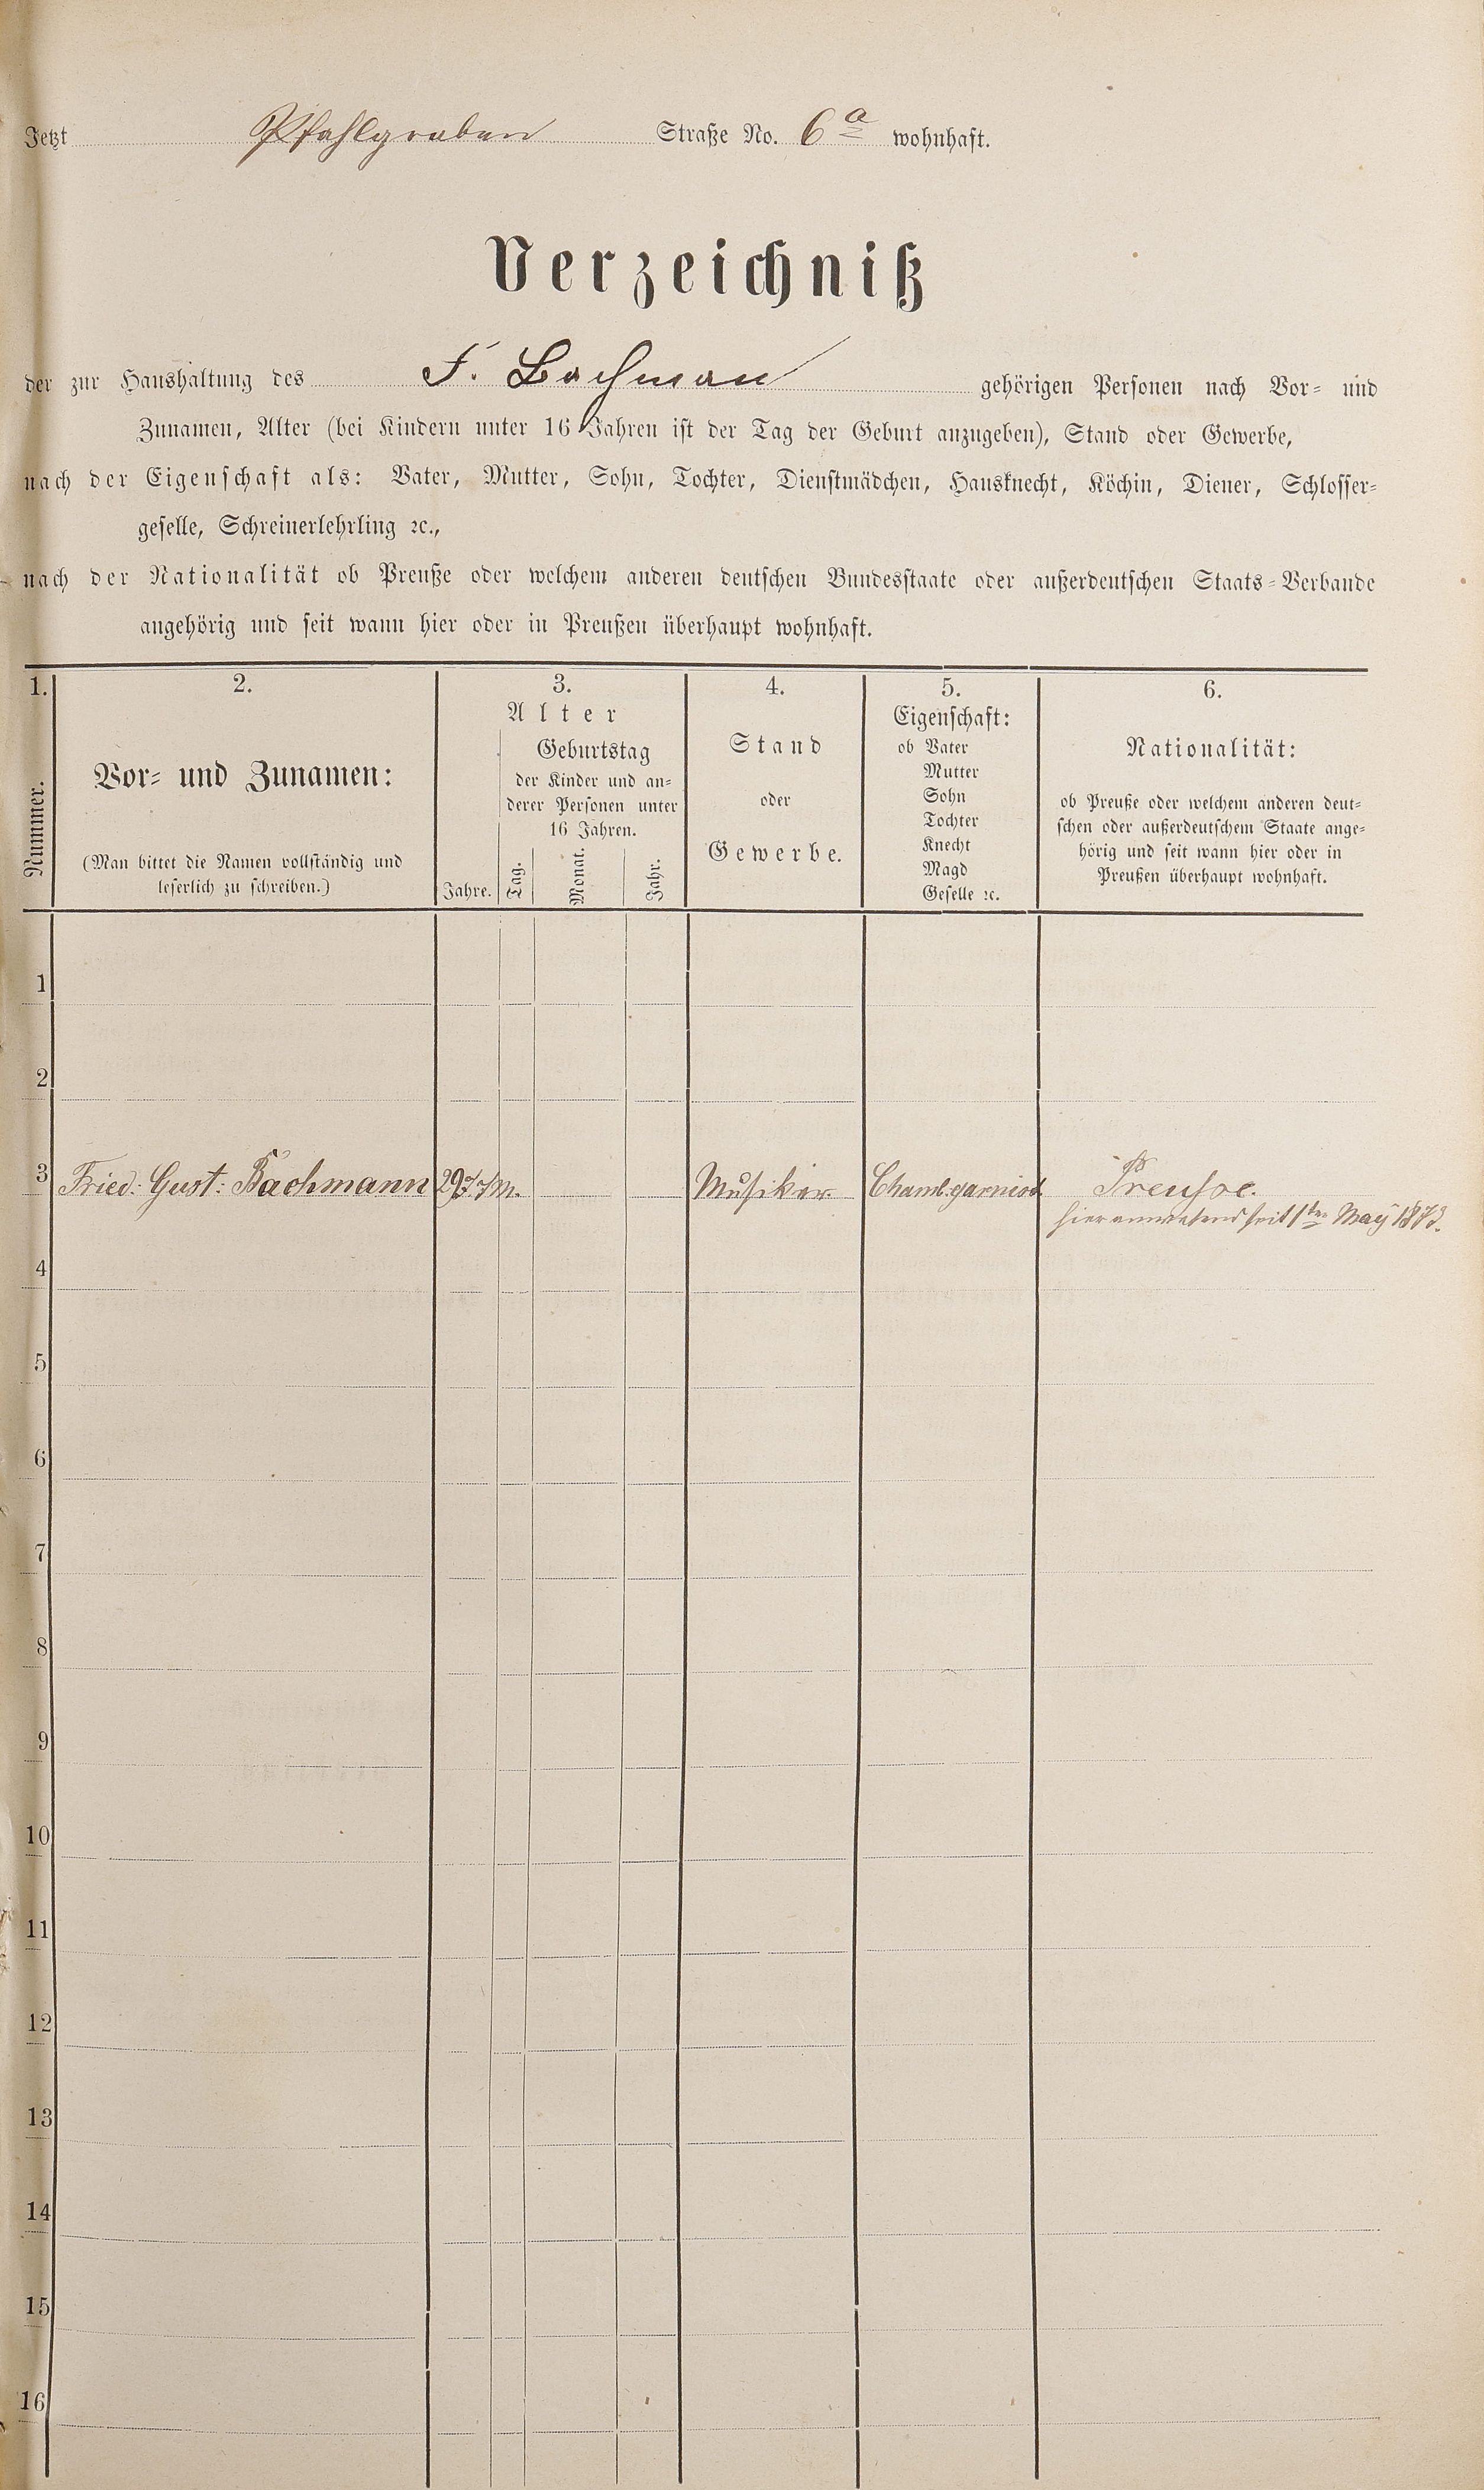 Jetzt Pfahlgraben Straße No. 6a wohnhaft.
Verzeichniß
der zur Haushaltung des F. Bachman gehörigen Personen nach Vor- und
Zunamen, Alter (bei Kindern unter 16 Jahren ist der Tag der Geburt anzugeben), Stand oder Gewerbe,
nach der Eigenschaft als: Vater, Mutter, Sohn, Tochter, Dienstmädchen, Hausknecht, Köchin, Diener, Schlosser-
geselle, Schreinerlehrling ꝛc.,
nach der Nationalität ob Preuße oder welchem anderen deutschen Bundesstaate oder außerdeutschen Staats-Verbande
angehörig und seit wann hier oder in Preußen überhaupt wohnhaft.
1.
Nummer.
2.
Vor- und Zunamen:
(Man bittet die Namen vollständig und
leserlich zu schreiben.)
3.
Alter
Jahre.
Geburtstag
der Kinder und an-
derer Personen unter
16 Jahren.
Tag.
Monat.
Jahr.
4.
Stand
oder
Gewerbe.
5.
Eigenschaft:
ob Vater
Mutter
Sohn
Tochter
Knecht
Magd
Geselle ꝛc.
6.
Nationalität:
ob Preuße oder welchem anderen deut-
schen oder außerdeutschem Staate ange-
hörig und seit wann hier oder in
Preußen überhaupt wohnhaft.
1
2
3 Fried: Gust: Bachmann 29 J 7 M. Musiker Chamb. garnist. Preusse.
hier anwesend seit 1ten May 1873.
4
5
6
7
8
9
10
11
12
13
14
15
16